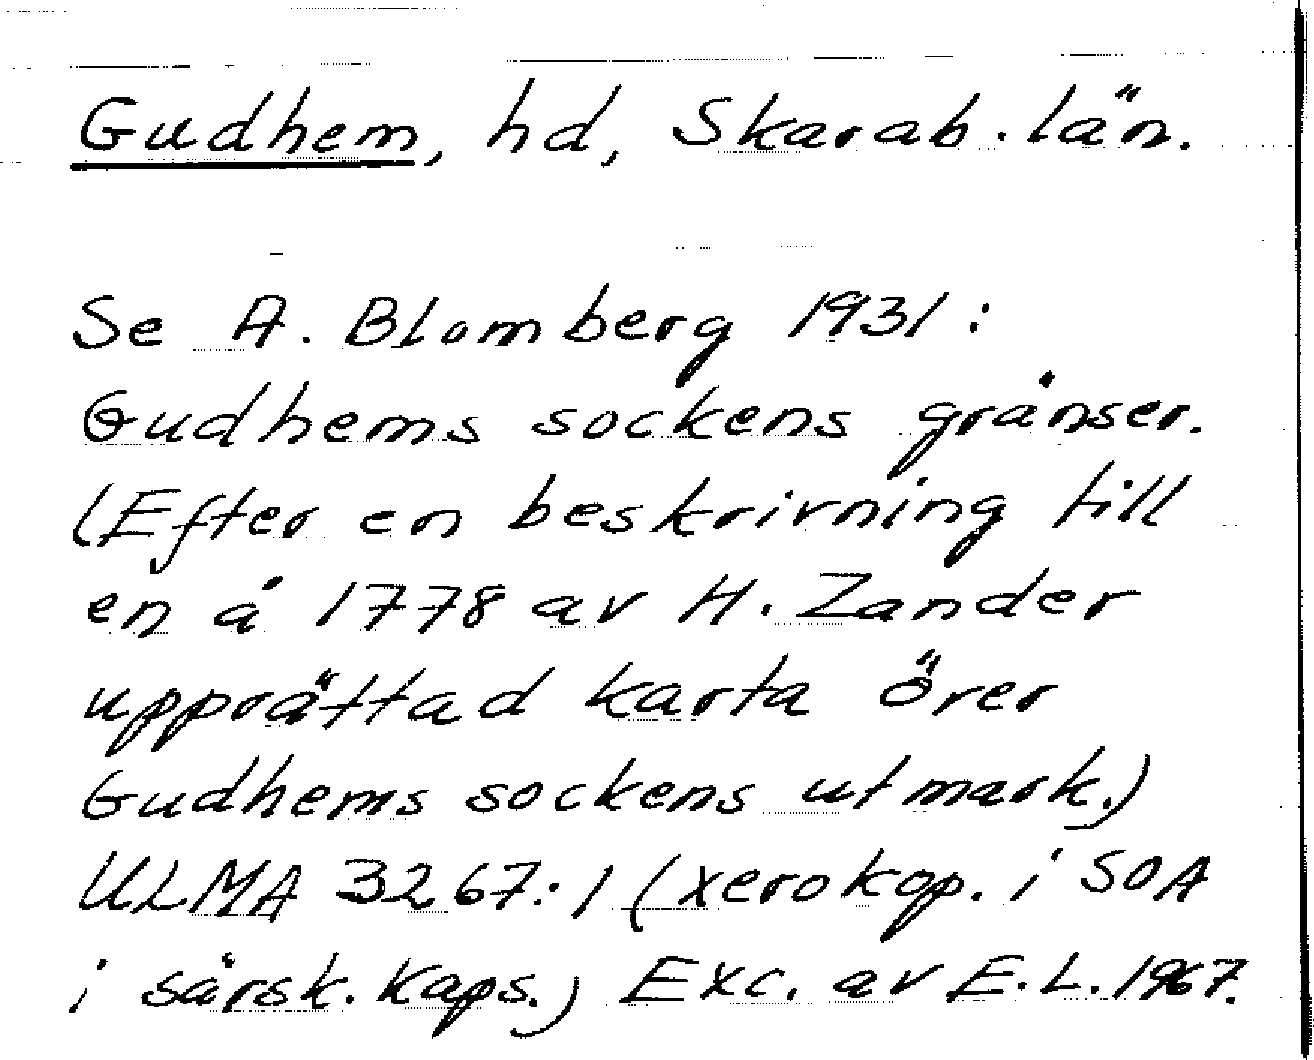 Gudhem, hd, Skarab. län.
Se A. Blomberg 1931:
Gudhems sockens gränser.
(Efter en beskrivning till
en å 1778 av H. Zander
upprättad karta över
Gudhems sockens utmark.)
ULMA 3267:1 (xerokop. i SOA
i särsk. kaps.) Exc. av E.L. 1967.